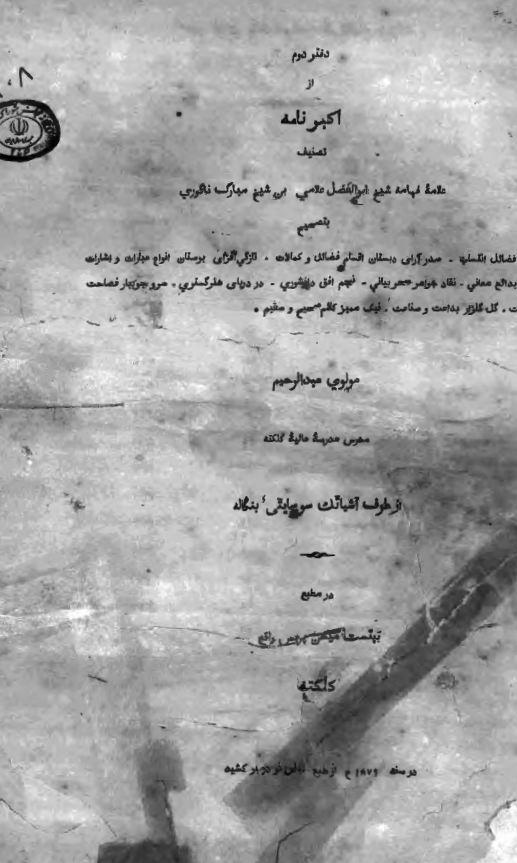 دفتر دوم
از
اکبر نامه
تصنیف
علامهٔ فهامه شیخ ابوالفضل علامي بن شیخ مبارک ناگوري
بتصحیح
فضائل انتساب ـ صدر آرای دبستان اقسام فضائل و کمالات ـ تازگي افزای بوستان انواع عبارات و اشارات
بدائع معاني ـ نقاد جواهر سحر بیاني ـ نجم افق دانشوري ـ در دریای هنر گستري ـ سرو جویبار فصاحت
ت ـ گل گلزار بداعت و صناعت ـ نیک ممیز کلام صحیح و سقیم ـ
مولوي عبدالرحیم
مدرس مدرسهٔ عالیهٔ کلکته
از طرف آشیاتک سوسایتی بنگاله
در مطبع
بپتست میشن پریس واقع
کلکته
در سنه ۱۸۷۹ ع از طبع نو در بر کشید